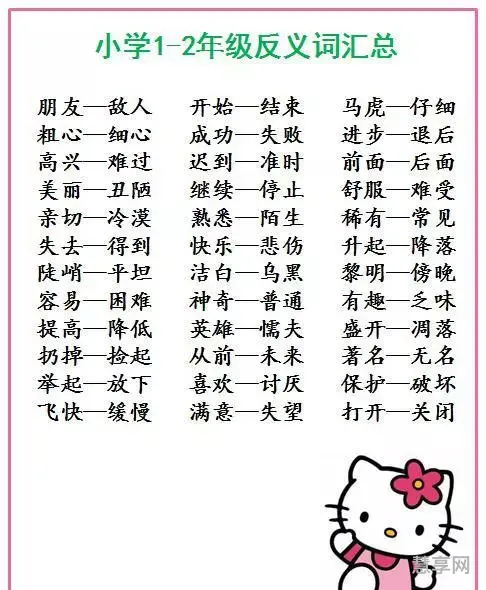 小学1-2年级反义词汇总
朋友—敌人 开始—结束 马虎—仔细
粗心—细心 成功—失败 进步—退后
高兴—难过 迟到—准时 前面—后面
美丽—丑陋 继续—停止 舒服—难受
亲切—冷漠 熟悉—陌生 稀有—常见
失去—得到 快乐—悲伤 升起—降落
陡峭—平坦 洁白—乌黑 黎明—傍晚
容易—困难 神奇—普通 有趣—乏味
提高—降低 英雄—懦夫 盛开—凋落
扔掉—捡起 从前—未来 著名—无名
举起—放下 喜欢—讨厌 保护—破坏
飞快—缓慢 满意—失望 打开—关闭
慧享网